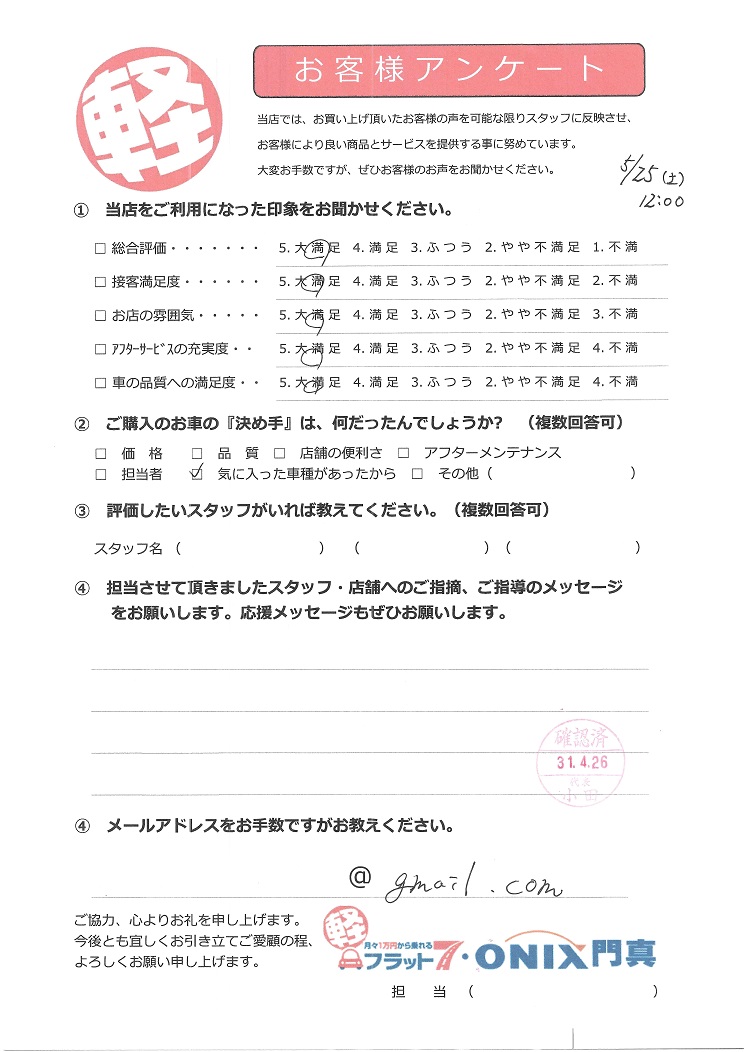 軽
お客様アンケート
当店では、お買い上げ頂いたお客様の声を可能な限りスタッフに反映させ、
お客様により良い商品とサービスを提供する事に努めています。
大変お手数ですが、ぜひお客様のお声をお聞かせください。
5/25(土)
12:00
① 当店をご利用になった印象をお聞かせください。
□ 総合評価・・・・・・・ 5.大満足 4.満足 3.ふつう 2.やや不満足 1.不満
□ 接客満足度・・・・・・ 5.大満足 4.満足 3.ふつう 2.やや不満足 2.不満
□ お店の雰囲気・・・・・ 5.大満足 4.満足 3.ふつう 2.やや不満足 3.不満
□ ｱﾌﾀｰｻｰﾋﾞｽの充実度・・ 5.大満足 4.満足 3.ふつう 2.やや不満足 4.不満
□ 車の品質への満足度・・ 5.大満足 4.満足 3.ふつう 2.やや不満足 4.不満
② ご購入のお車の『決め手』は、何だったんでしょうか? （複数回答可）
□ 価 格 □ 品 質 □ 店舗の便利さ □ アフターメンテナンス
□ 担当者 ☑ 気に入った車種があったから □ その他（ ）
③ 評価したいスタッフがいれば教えてください。（複数回答可）
スタッフ名（ ）（ ）（ ）
④ 担当させて頂きましたスタッフ・店舗へのご指摘、ご指導のメッセージ
をお願いします。応援メッセージもぜひお願いします。
確認済
31.4.26
代表
小田
④ メールアドレスをお手数ですがお教えください。
@ gmail.com
ご協力、心よりお礼を申し上げます。
今後とも宜しくお引き立てご愛顧の程、
よろしくお願い申し上げます。
軽
月々1万円から乗れる
フラット7・ONIX門真
担 当 （ ）